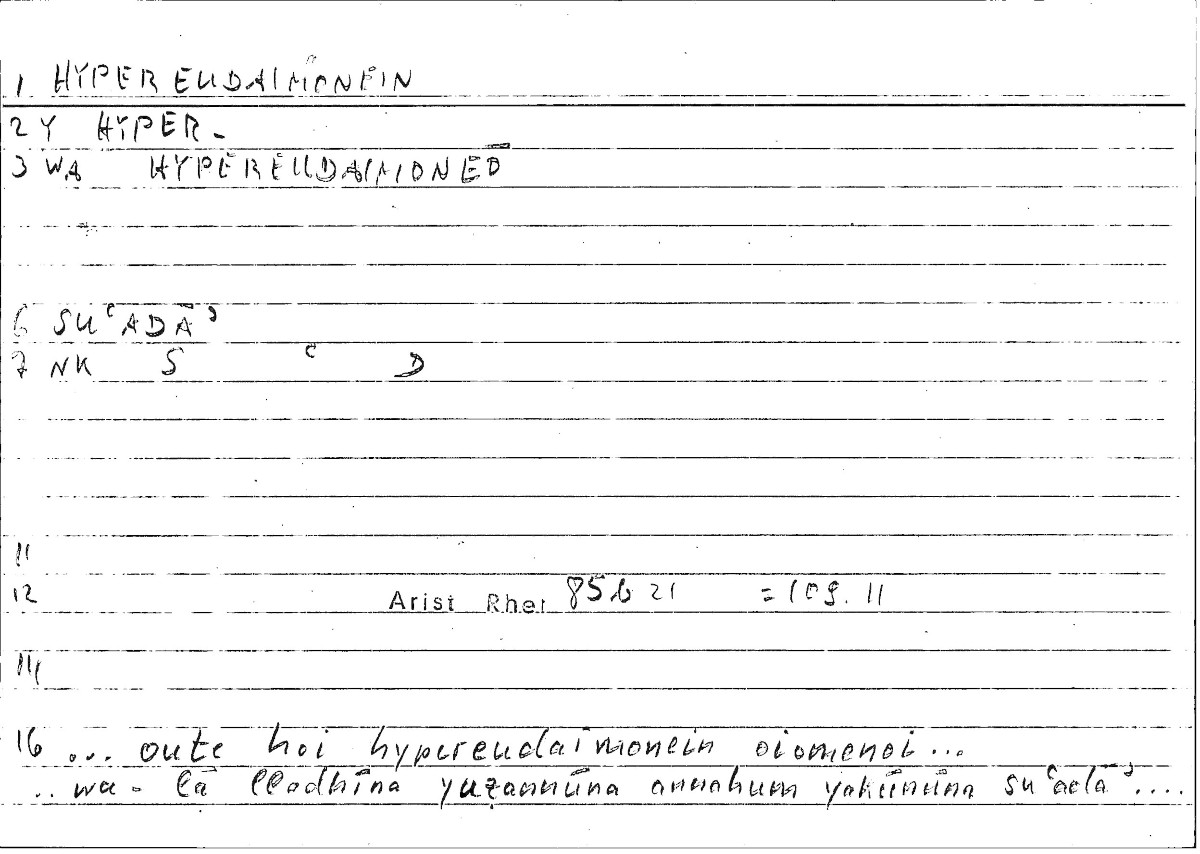 1 HYPEREUDAIMONEIN
2 Y HYPER-
3 WA HYPEREUDAIMONEŌ
6 SUʿADĀʾ
7 NK S ʿ D
11
12 Arist Rhet 85b 21 = 109.11
14
16 ... oute hoi hypereudaimonein oiomenoi ...
.. wa-lā lladhīna yuẓannūna annahum yakūnūna suʿadāʾ ....